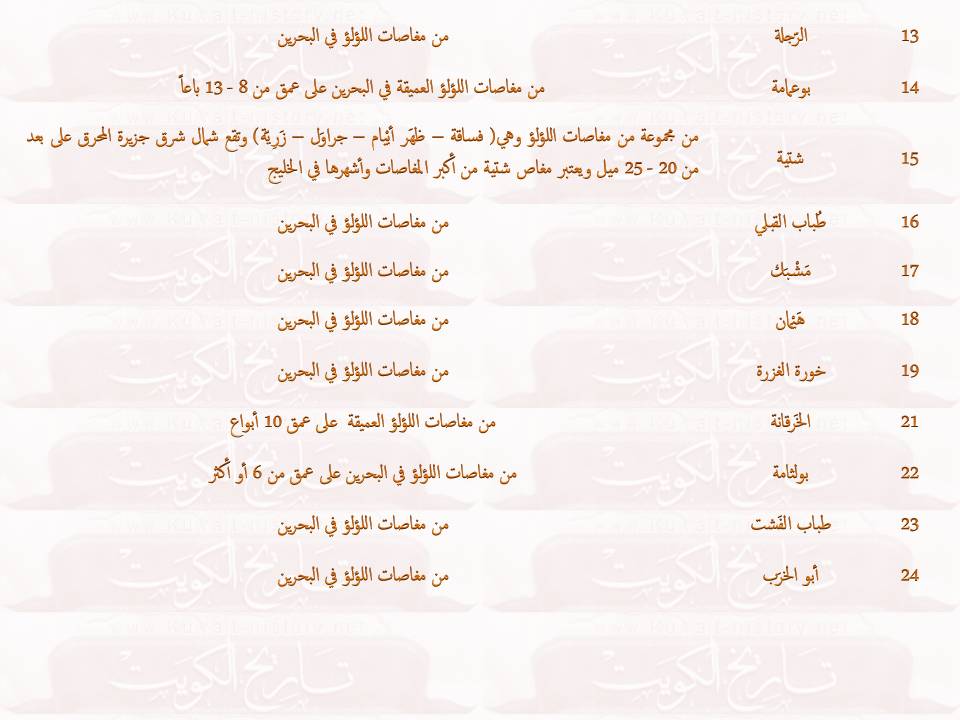 13 الرّجلة من مغاصات اللؤلؤ في البحرين
14 بوعمامة من مغاصات اللؤلؤ العميقة في البحرين على عمق من 8 - 13 باعاً
15 شتية من مجموعة من مغاصات اللؤلؤ وهي( فساقة – ظهَر أبْيام – جراوَل – زَريّة) وتقع شمال شرق جزيرة المحرق على بعد
من 20 - 25 ميل ويعتبر مغاص شتية من أكبر المغاصات وأشهرها في الخليج
16 طُباب القبلي من مغاصات اللؤلؤ في البحرين
17 مَشْبَك من مغاصات اللؤلؤ في البحرين
18 هَيْمان من مغاصات اللؤلؤ في البحرين
19 خورة الغزرة من مغاصات اللؤلؤ في البحرين
21 الخَرقانة من مغاصات اللؤلؤ العميقة على عمق 10 أبواع
22 بولثامة من مغاصات اللؤلؤ في البحرين على عمق من 6 أو أكثر
23 طباب الفَشت من مغاصات اللؤلؤ في البحرين
24 أبو الخرَب من مغاصات اللؤلؤ في البحرين
www.Kuwait-history.net
تاريخ الكويت